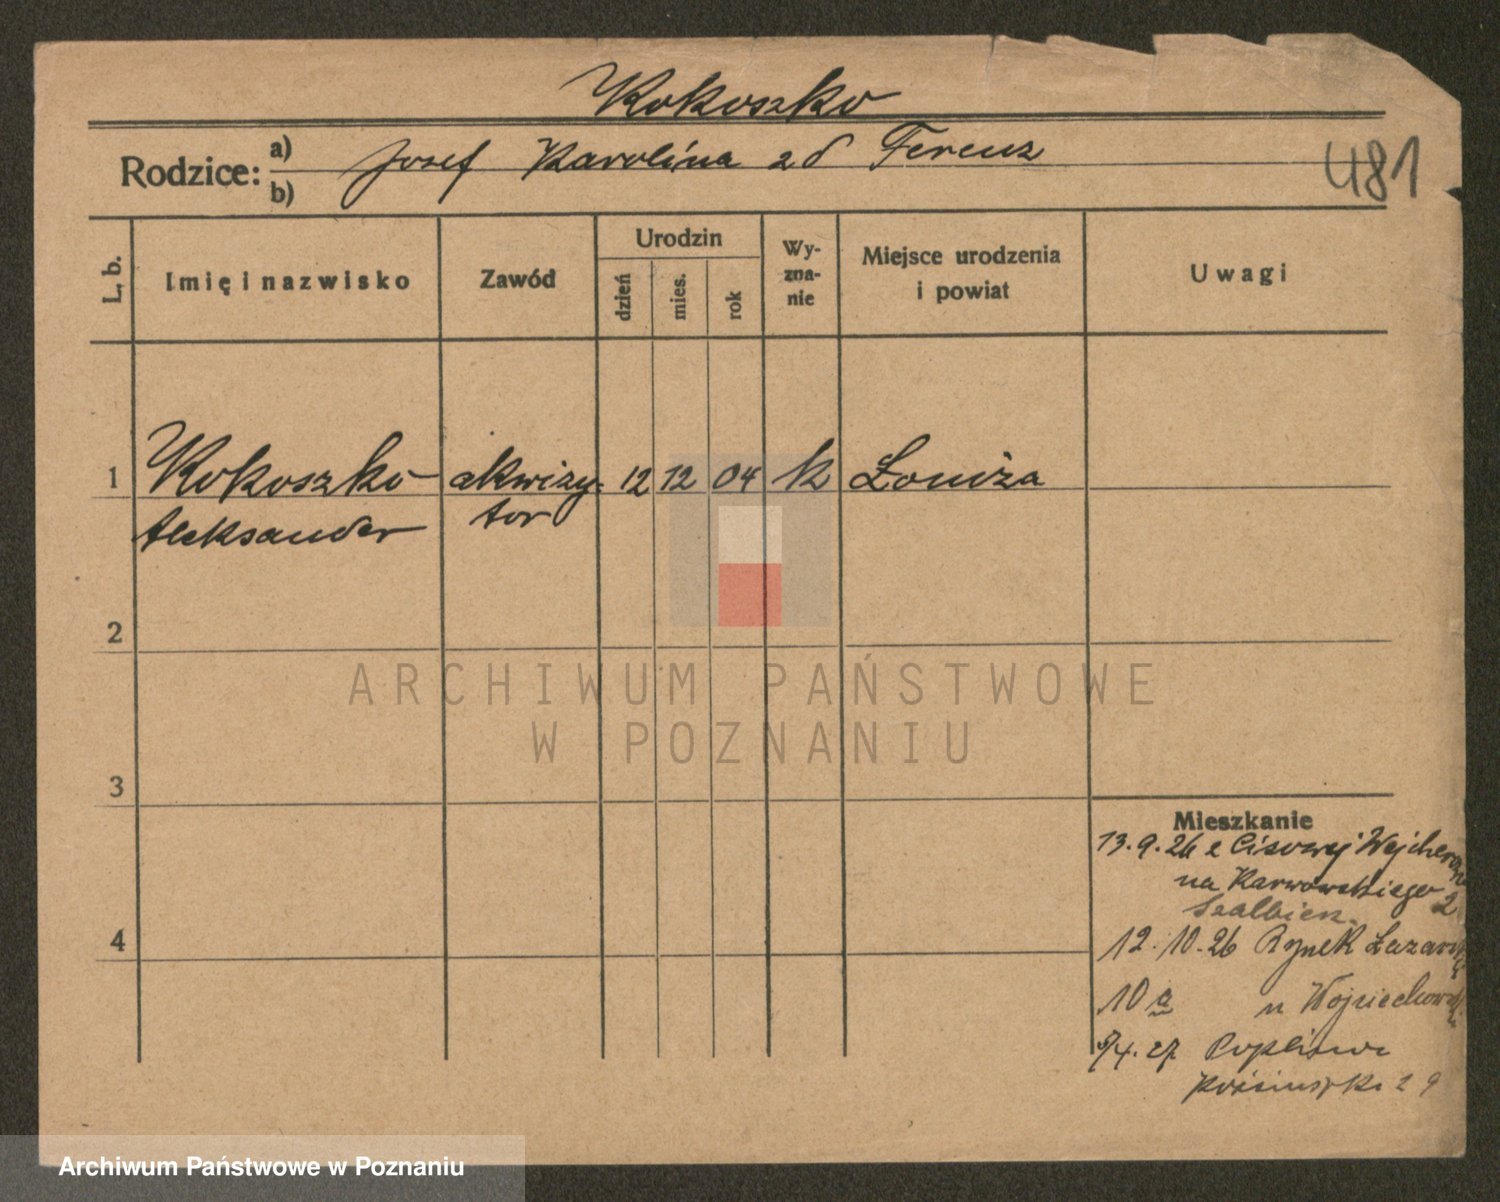 Kokoszko
Rodzice:
a)
b)
Josef Karolina zd Ferenz
481
L. b.
Imię i nazwisko
Zawód
Urodzin
dzień
mies.
rok
Wy-
zna-
nie
Miejsce urodzenia
i powiat
Uwagi
1
Kokoszko
Aleksander
akwizy-
tor
12
12
04
k
Łomża
2
3
4
Mieszkanie
13.9.26 z Cisowej Wejherow
na Karwowskiego 2
12.10.26 Rynek Łazarski
10 a u Wojciechowski
5/4.27
29
ARCHIWUM PAŃSTWOWE
W POZNANIU
Archiwum Państwowe w Poznaniu